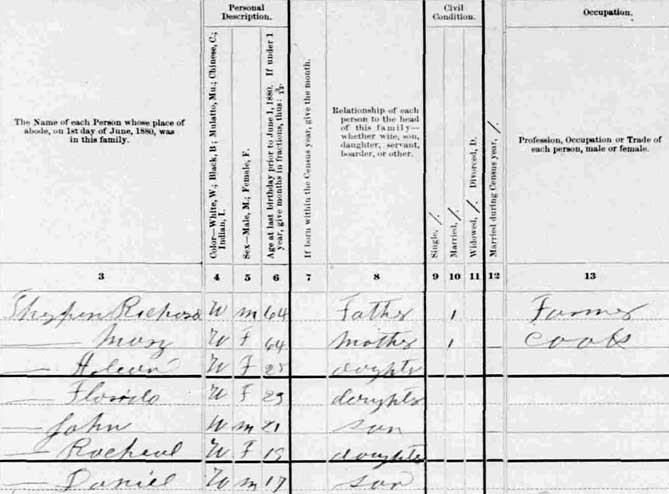 Personal Description.
Civil Condition.
Occupation.
The Name of each Person whose place of abode, on 1st day of June, 1880, was in this family.
Color—White, W.; Black, B.; Mulatto, Mu.; Chinese, C.; Indian, I.
Sex—Male, M.; Female, F.
Age at last birthday prior to June 1, 1880. If under 1 year, give months in fractions, thus: 3/12.
If born within the Census year, give the month.
Relationship of each person to the head of this family—whether wife, son, daughter, servant, boarder, or other.
Single, /.
Married, /.
Widowed, /. Divorced, D.
Married during Census year, /.
Profession, Occupation or Trade of each person, male or female.
3 4 5 6 7 8 9 10 11 12 13
Richard W m 64 Father 1 Farmer
— Mary W F 64 Mother 1 Cook
— W F doughter
— Florida W F 23 doughter
— John W m 21 son
— Racheal W F 19 doughter
— Daniel W m 17 son